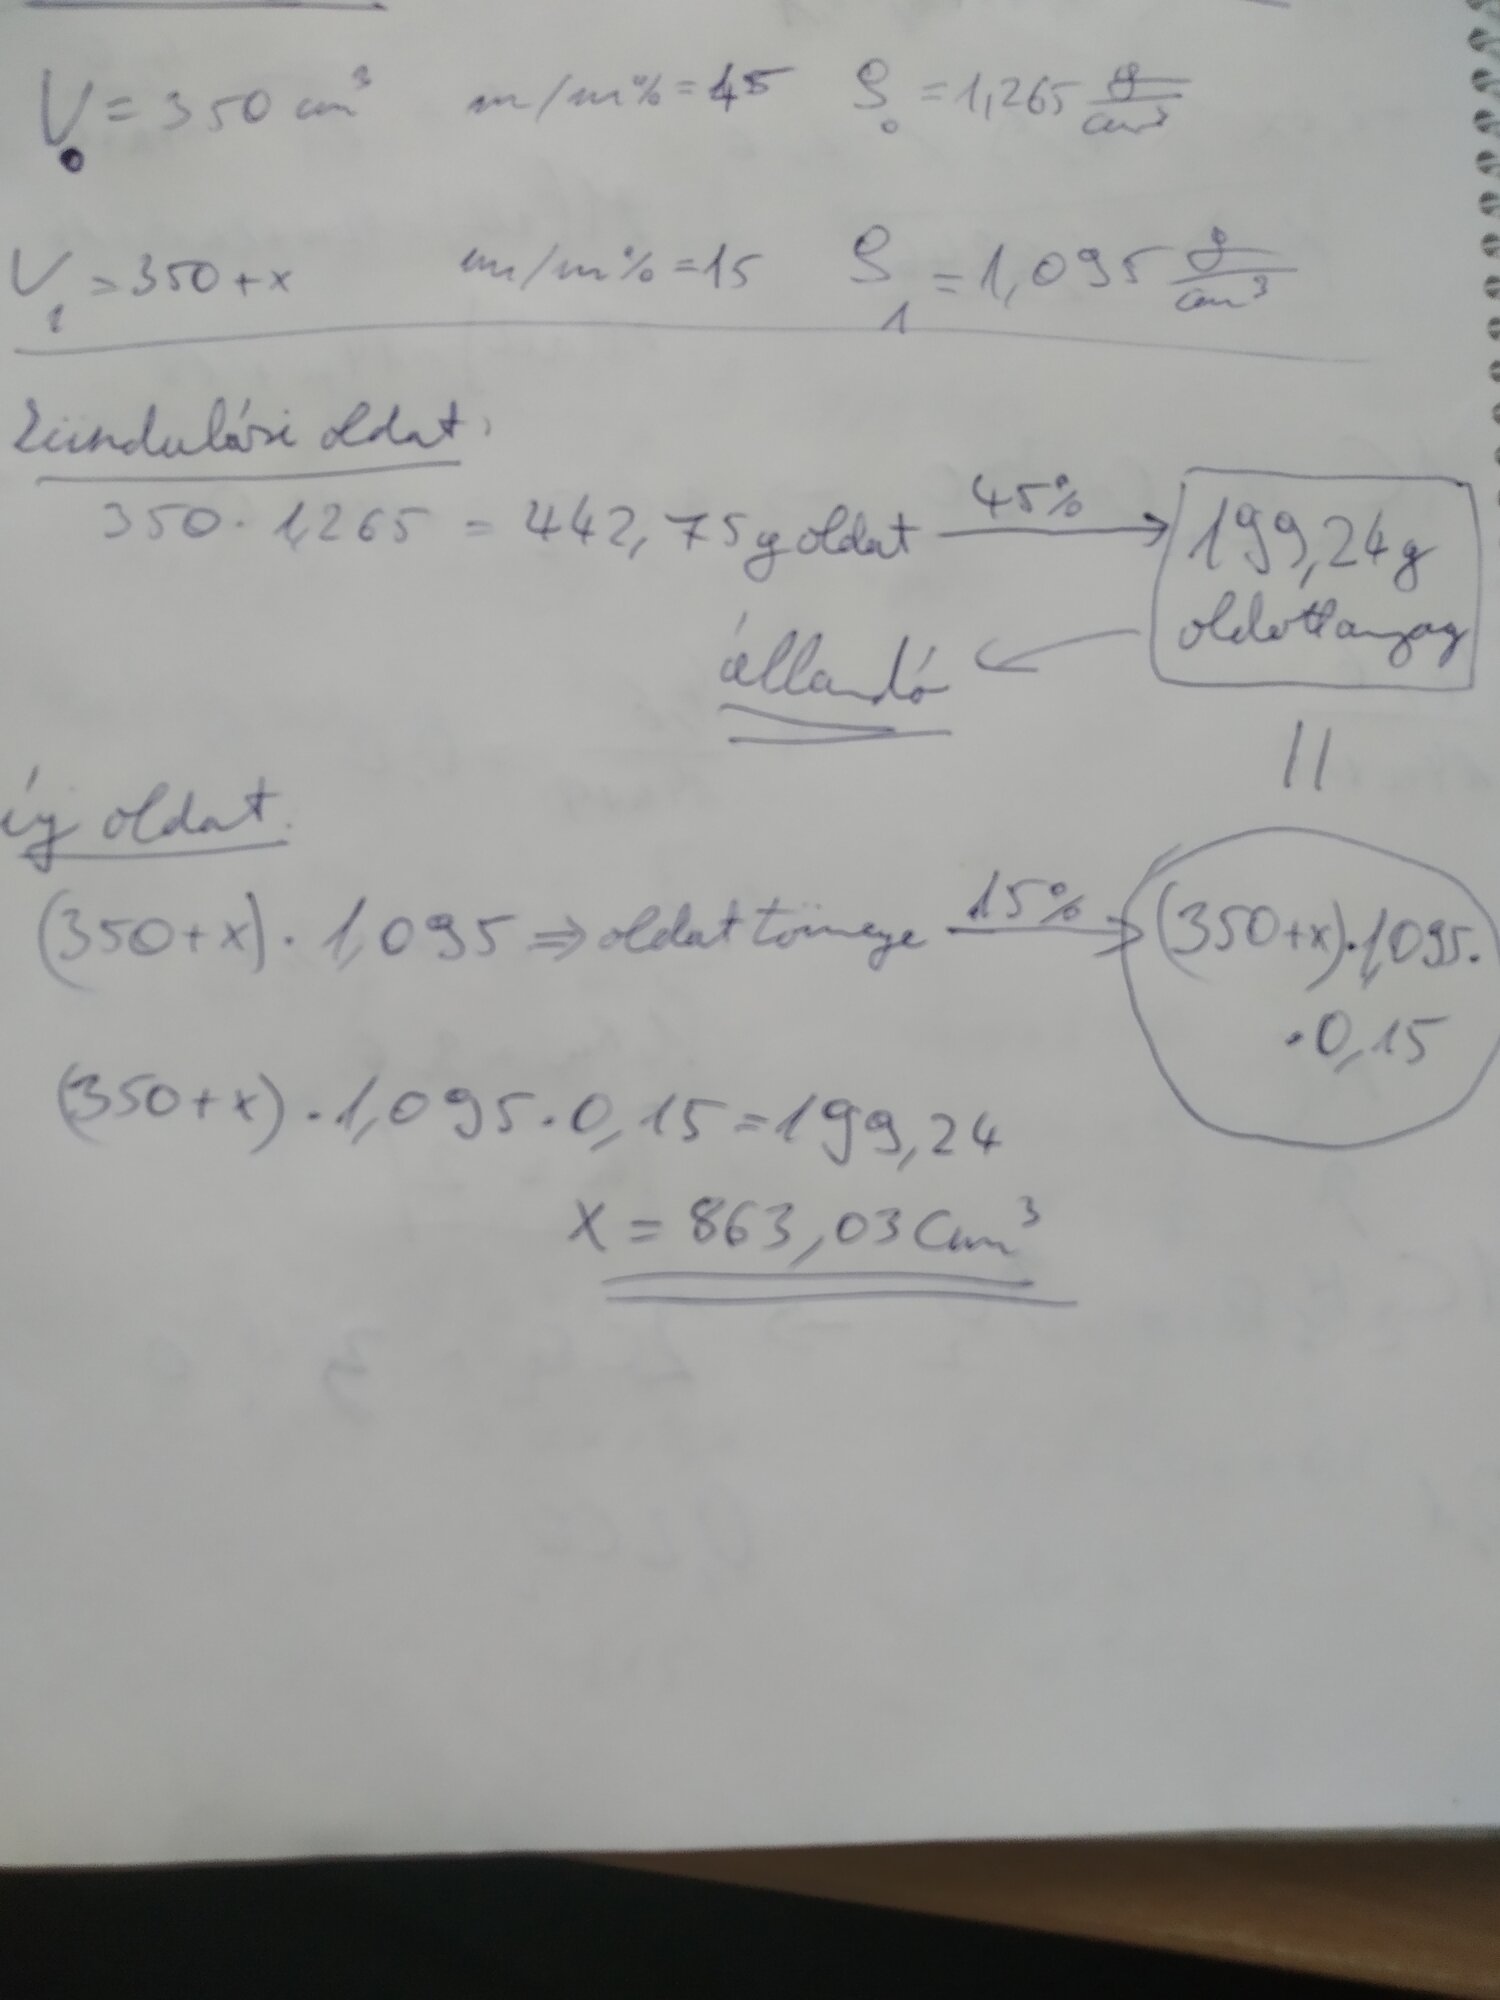 V₀ = 350 cm³ m/m% = 45 ρ₀ = 1,265 g/cm³
V₁ = 350+x m/m% = 15 ρ₁ = 1,095 g/cm³
Kiindulási oldat:
350 · 1,265 = 442,75 g oldat 45% → 199,24 g
oldottanyag
állandó ←
||
új oldat:
(350+x) · 1,095 ⇒ oldat tömege 15% → (350+x)·1,095·
·0,15
(350+x) · 1,095 · 0,15 = 199,24
x = 863,03 cm³